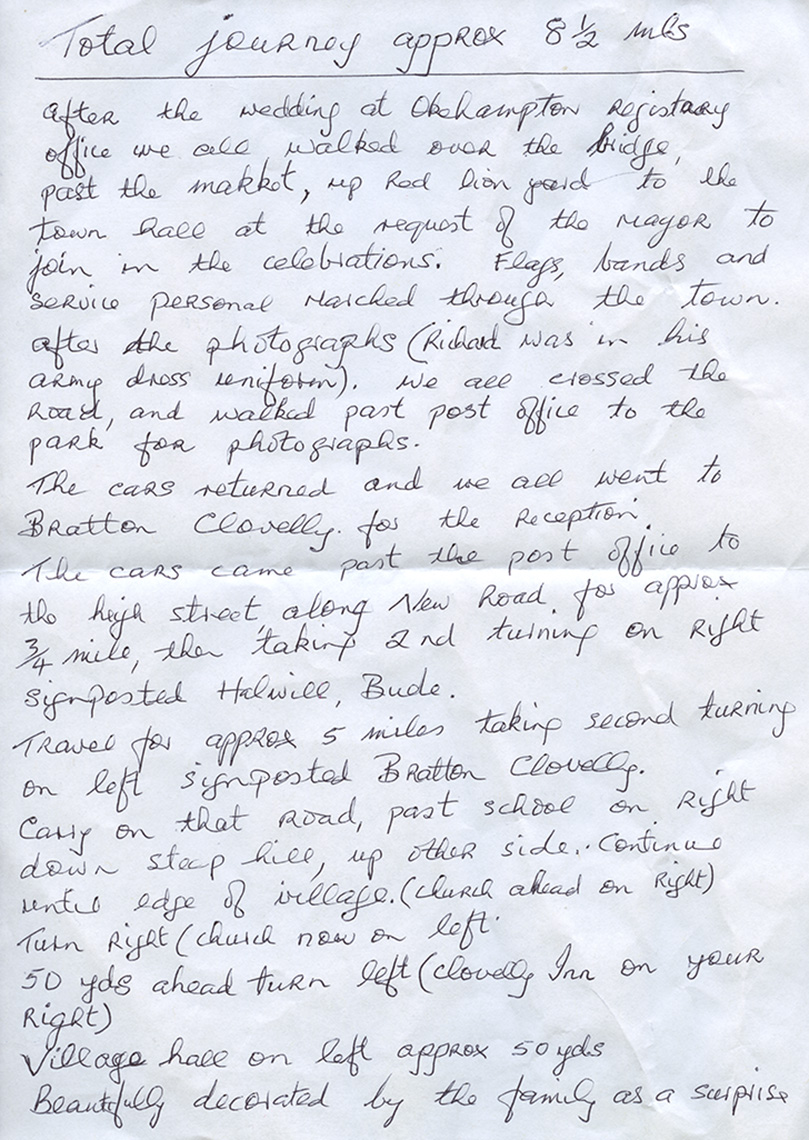 Total journey approx 8½ mls
after the wedding at Okehampton registrary
office we all walked over the bridge,
past the market, up Red Lion yard to the
town hall at the request of the mayor to
join in the celebrations. Flags, bands and
service personal marched through the town.
after the photographs (Richard was in his
army dress uniform). we all crossed the
road, and walked past post office to the
park for photographs.
The cars returned and we all went to
Bratton Clovelly. for the reception.
The cars came past the post office to
the high street, along New Road. for approx
¾ mile, then taking 2nd turning on right
signposted Halwill, Bude.
Travel for approx 5 miles taking second turning
on left signposted Bratton Clovelly.
Carry on that road, past school on right
down steep hill, up other side.. Continue
until edge of village. (church ahead on right)
Turn right (church now on left.
50 yds ahead turn left (Clovelly Inn on your
right)
Village hall on left approx 50 yds
Beautifully decorated by the family as a surprise